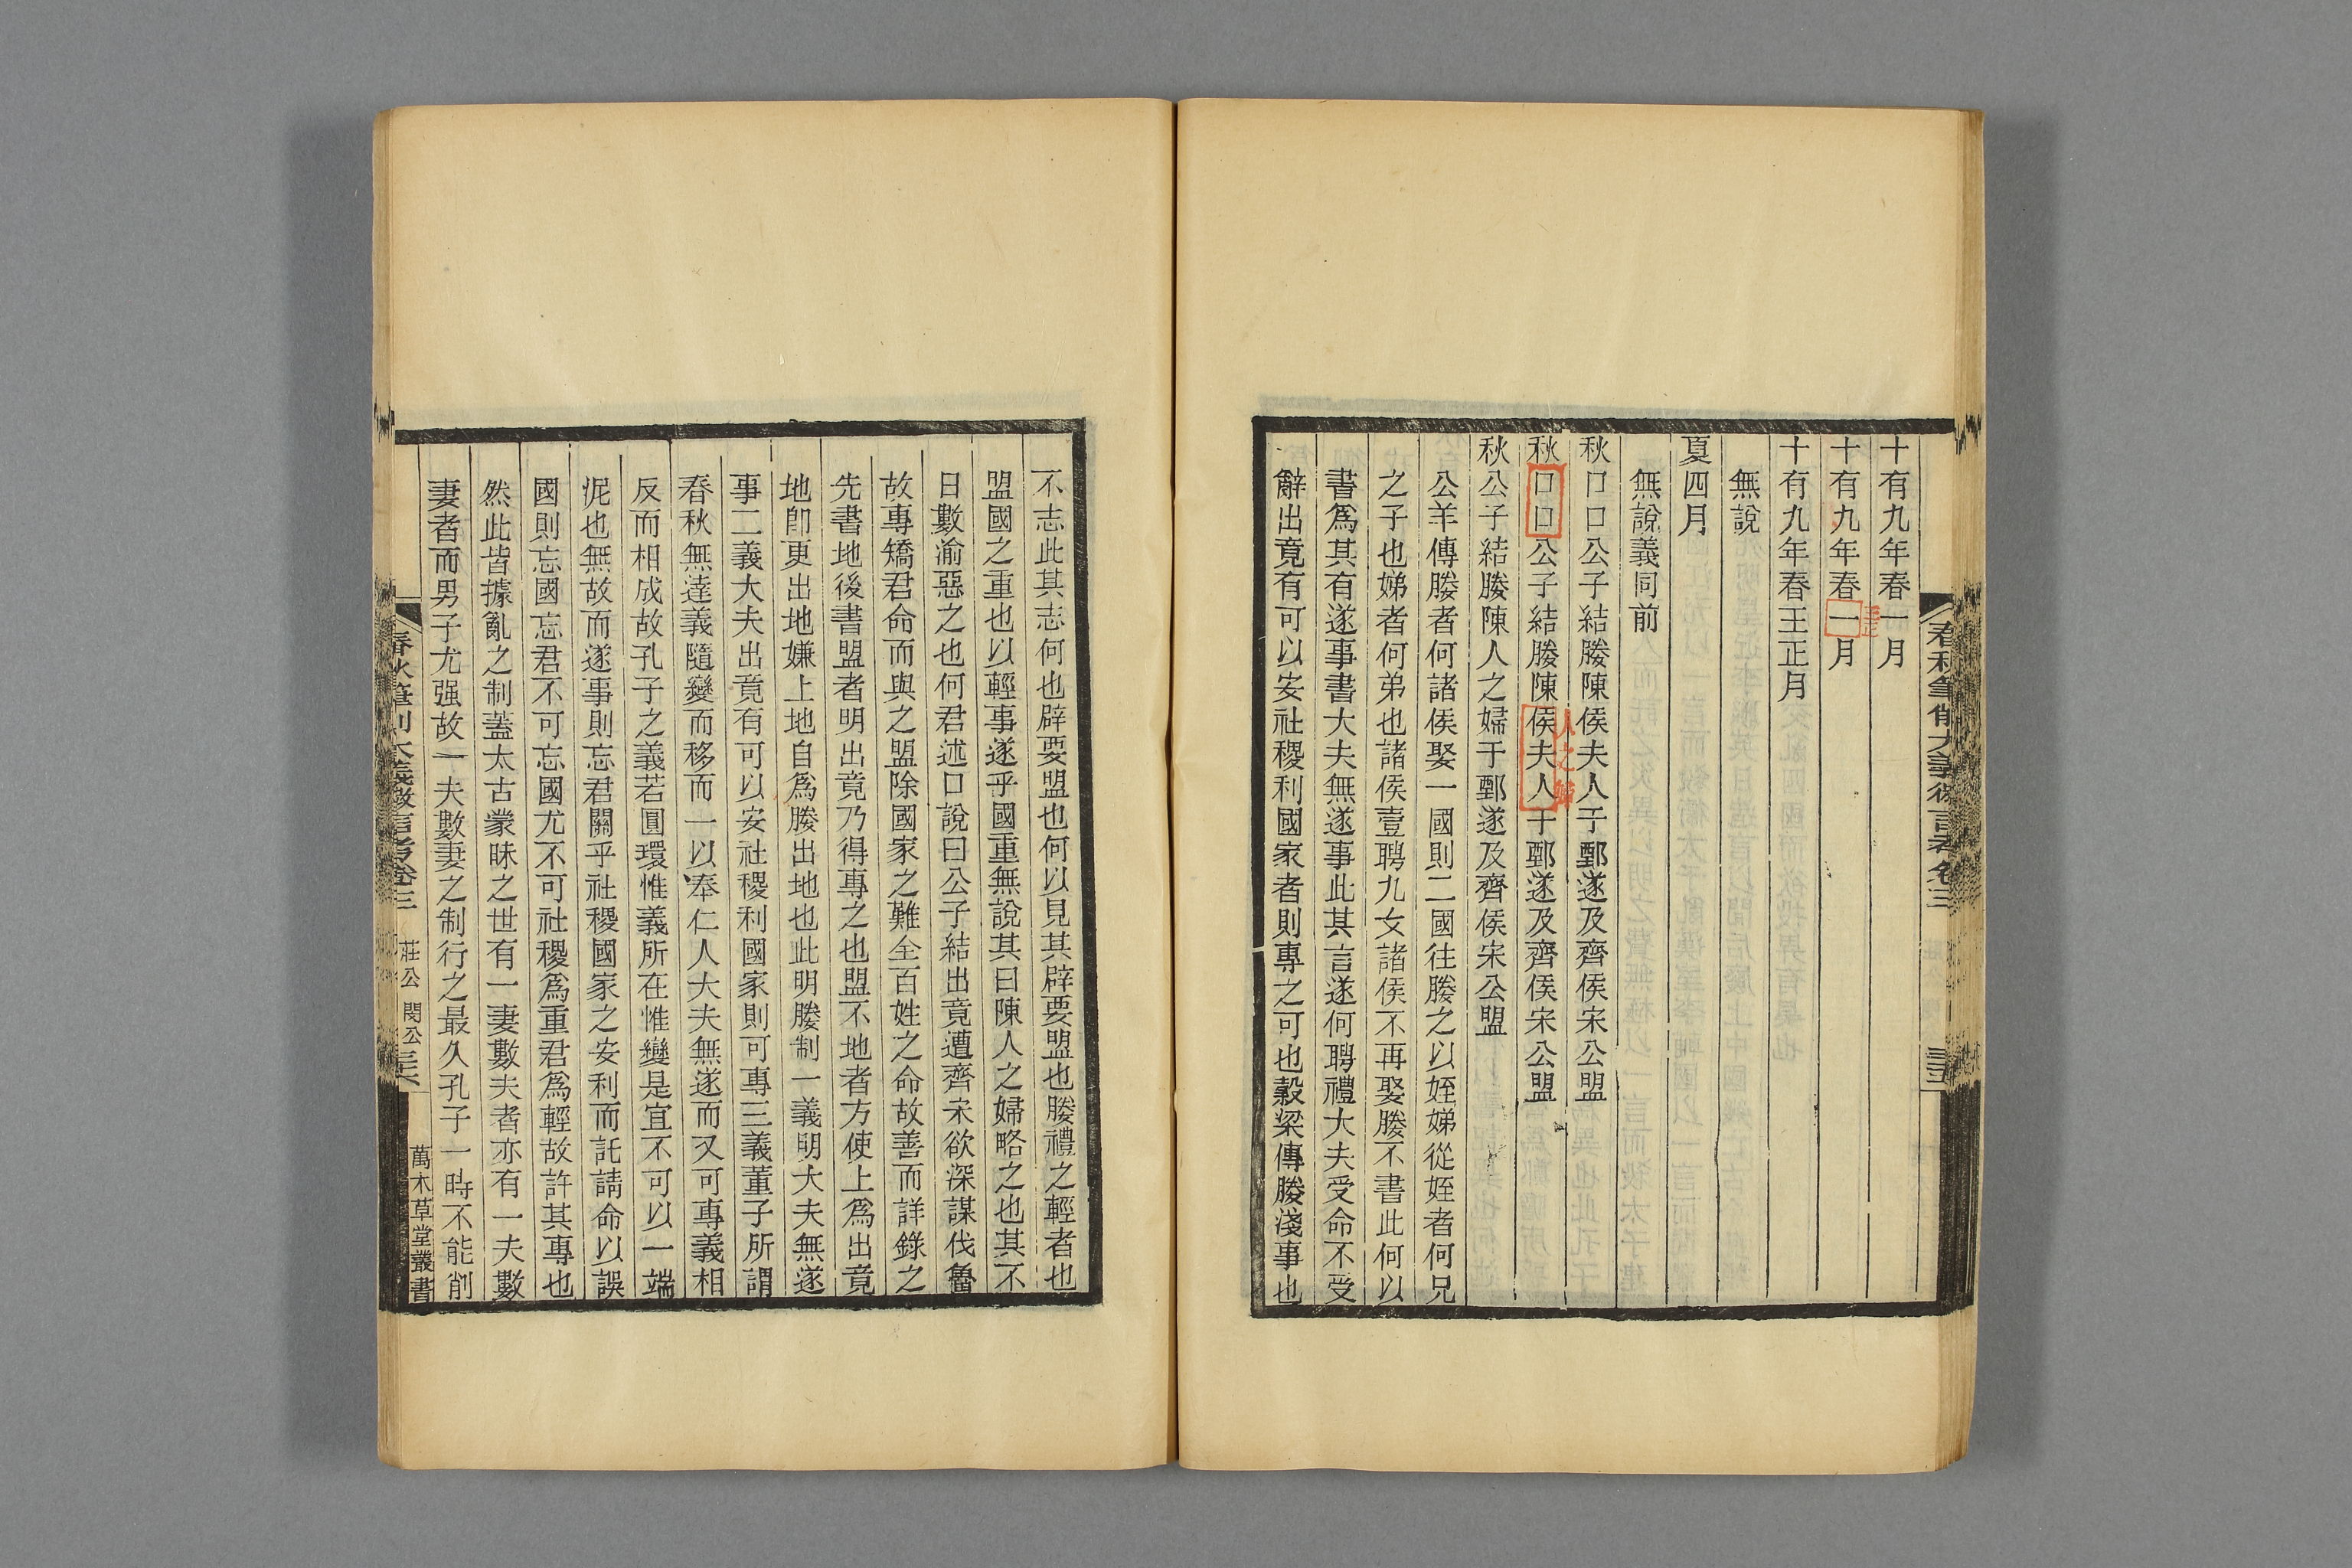 春秋筆削大義微言考卷三
三十五
十有九年春一月
十有九年春一月
王正
十有九年春王正月
無說
夏四月
無說義同前
秋口口公子結媵陳侯夫人于鄄遂及齊侯宋公盟
秋口口公子結媵陳侯夫人于鄄遂及齊侯宋公盟
人之婦
秋公子結媵陳人之婦于鄄遂及齊侯宋公盟
公羊傳媵者何諸侯娶一國則二國往媵之以姪娣從姪者何兄
之子也娣者何弟也諸侯壹聘九女諸侯不再娶媵不書此何以
書爲其有遂事書大夫無遂事此其言遂何聘禮大夫受命不受
辭出竟有可以安社稷利國家者則專之可也穀梁傳媵淺事也
不志此其志何也辟要盟也何以見其辟要盟也媵禮之輕者也
盟國之重也以輕事遂乎國重無說其曰陳人之婦略之也其不
日數渝惡之也何君述口說曰公子結出竟遭齊宋欲深謀伐魯
故專矯君命而與之盟除國家之難全百姓之命故善而詳錄之
先書地後書盟者明出竟乃得專之也盟不地者方使上爲出竟
地卽更出地嫌上地自爲媵出地也此明媵制一義明大夫無遂
事二義大夫出竟有可以安社稷利國家則可專三義董子所謂
春秋無達義隨變而移而一以奉仁人大夫無遂而又可專義相
反而相成故孔子之義若圓環惟義所在惟變是宜不可以一端
泥也無故而遂事則忘君關乎社稷國家之安利而託請命以誤
國則忘國忘君不可忘國尤不可社稷爲重君爲輕故許其專也
然此皆據亂之制蓋太古蒙昧之世有一妻數夫者亦有一夫數
妻者而男子尤强故一夫數妻之制行之最久孔子一時不能削
春秋筆削大義微言考卷三
莊公 閔公
三十六
萬木草堂叢書